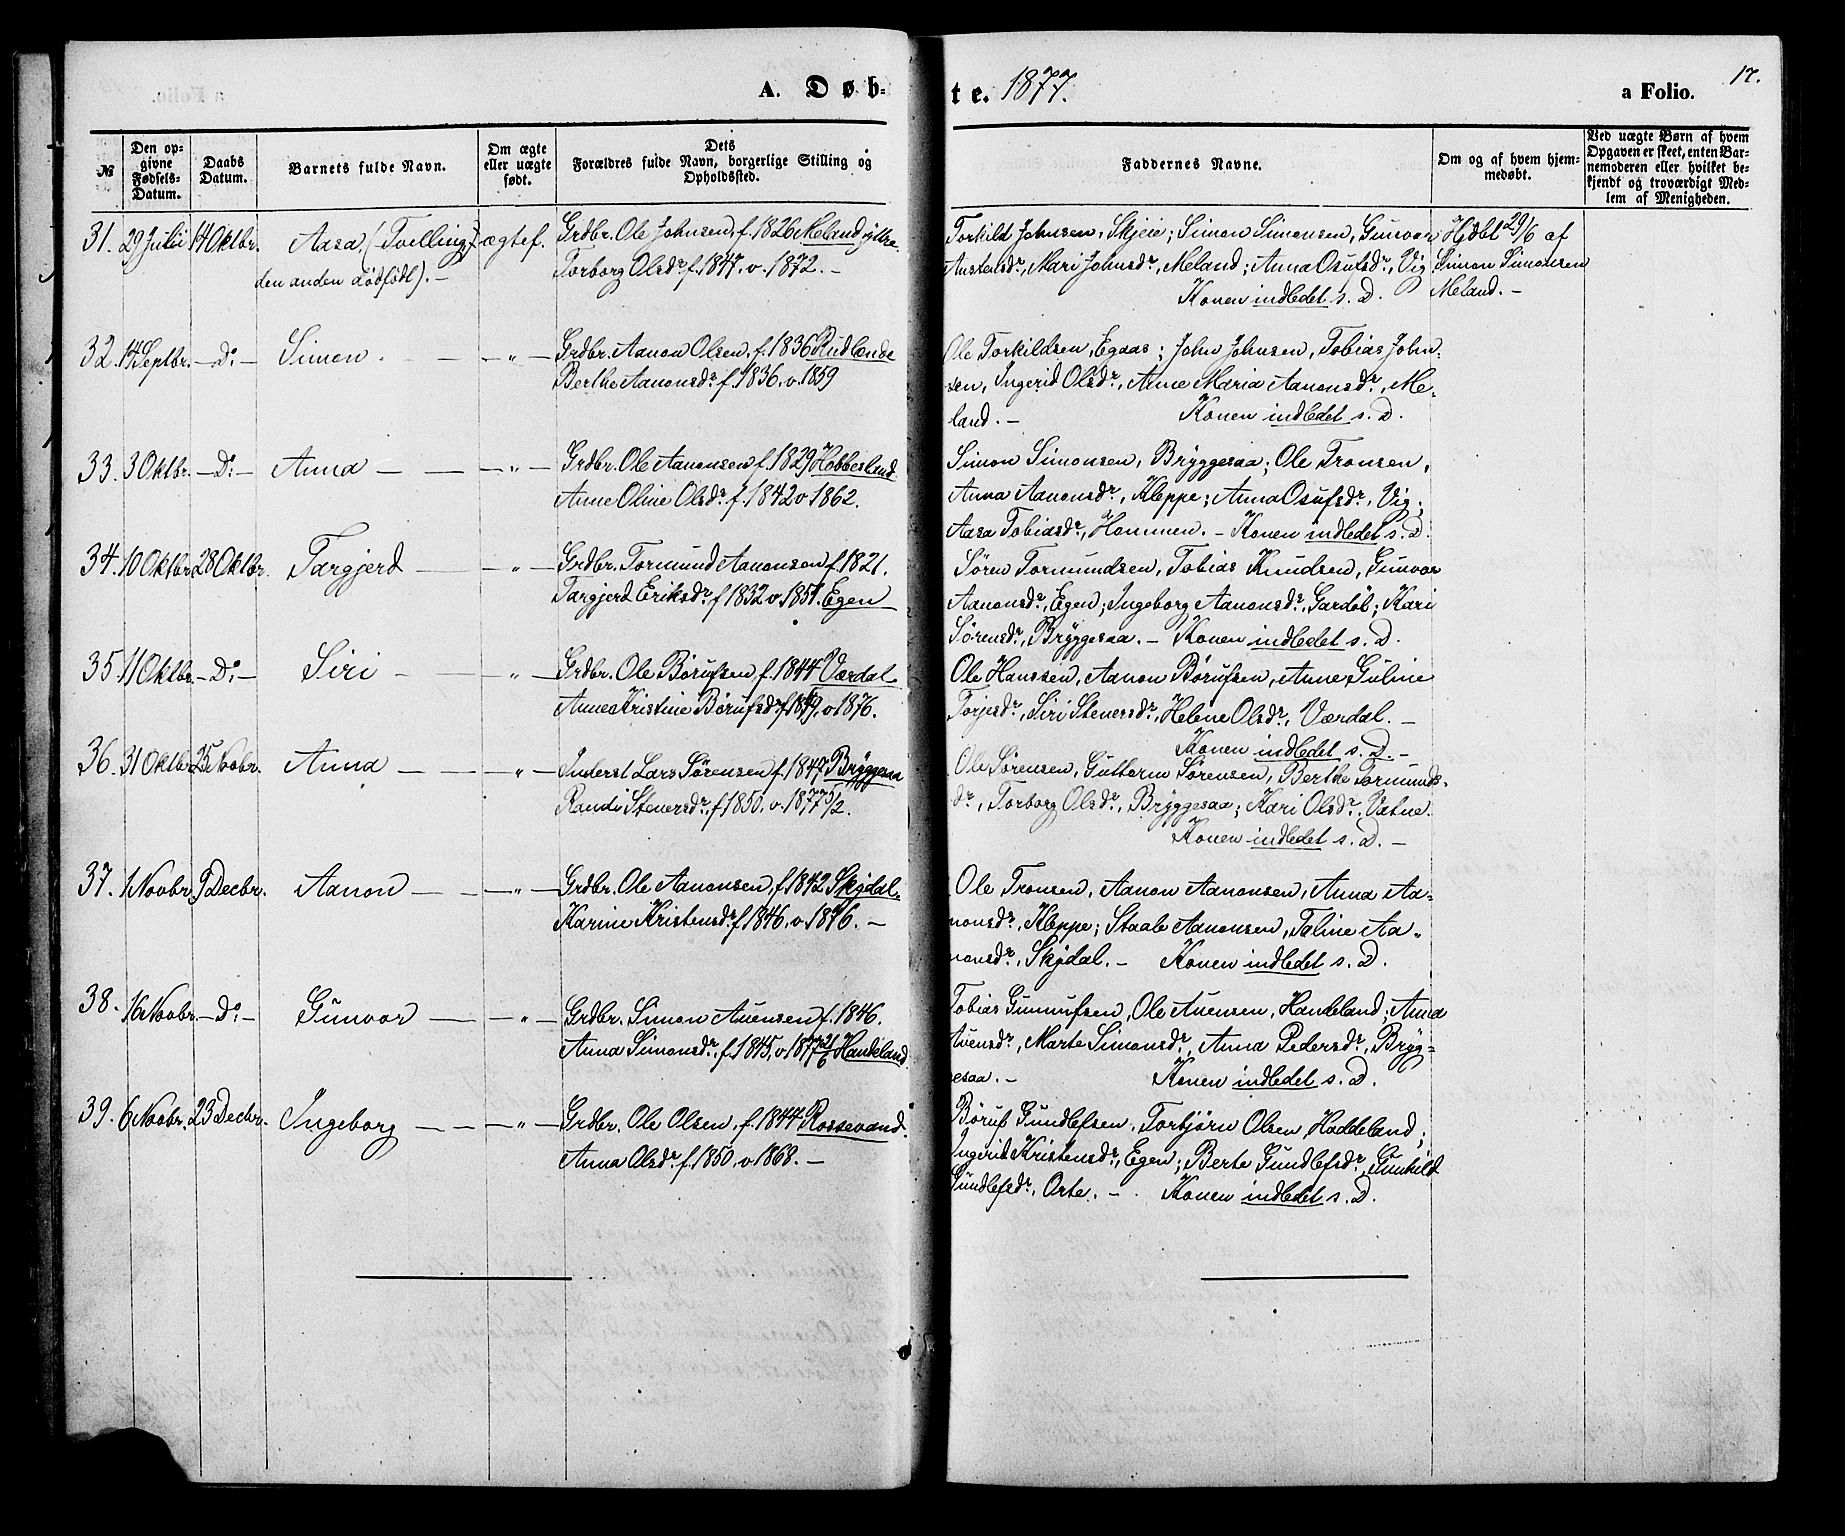 A. Døb-
te. 1877.
a Folio. 17.
№
Den op-
givne
Fødsels-
Datum.
Daabs
Datum.
Barnets fulde Navn.
Om ægte
eller uægte
født.
Dets
Forældres fulde Navn, borgerlige Stilling og
Opholdssted.
Faddernes Navne.
Om og af hvem hjem-
medøbt.
Ved uægte Børn af hvem
Opgaven er skeet, enten Bar-
nemoderen eller hvilket be-
kjendt og troværdigt Med-
lem af Menigheden.
31. 29 Julii 14 Oktbr. Aasa (Tvelling, ægtef. Grdbr. Ole Johnsen, f. 1826 Meland, ytre.
den anden dødfødt). – Torborg Olsdr. f. 1847, v. 1872. –
Torkild Johnsen, Skjeie; Simon Simonsen, Gunvor Hjdbt 29/6 af
Austensdr., Mari Johnsdr., Meland; Anna Osufsdr., Vig Simon Simonsen
Konen indledet s. D. Meland. –
32. 14 Septbr. – Do: – Simon. – – „ – Grdbr. Aanon Olsen, f. 1836 Rudlende
Berthe Aanonsdr. f. 1836. v. 1859
Ole Torkildsen, Egaas; John Johnsen, Tobias John-
sen, Ingerid Olsdr., Anne Maria Aanonsdr., Me-
land. – Konen indledet s. D.
33. 3 Oktbr. – Do: – Anna – – – „ – Grdbr. Ole Aanonsen f. 1829 Hobbesland
Anne Oline Olsdr. f. 1842 v. 1862.
Simon Simonsen, Bryggesaa; Ole Tronsen,
Anna Aanonsdr., Kleppe; Anna Osufsdr., Vig;
Aasa Tobiasdr., Hommen. – Konen indledet s. D.
34. 10 Oktbr. 28 Oktbr. Targjerd – – „ – Grdbr. Tormund Aanonsen f. 1821.
Targjerd Eriksdr. f. 1832 v. 1851. Egen
Søren Tormundsen, Tobias Knudsen, Gunvor
Aanonsdr., Egen; Ingeborg Aanonsdr., Gardøl; Kari
Sørensdr., Bryggesaa. – Konen indledet s. D.
35. 11 Oktbr. – Do: – Siri – – „ – Grdbr. Ole Børufsen f. 1844 Værdal
Anne Kristine Børufsdr. f. 1849, v. 1876.
Ole Hanssen, Aanon Børufsen, Anne Guline
Torjesdr., Siri Stenersdr., Helene Olsdr., Værdal. –
Konen indledet s. D. –
36. 31 Oktbr. 25 Novbr. Anna – – – „ – Inderst Lars Sørensen f. 1847 Bryggesaa
Randi Stenersdr., f. 1850. v. 1877 5/2.
Ole Sørensen, Guttorm Sørensen, Berthe Tormunds-
dr., Torborg Olsdr., Bryggesaa; Kari Olsdr., Vatne.
Konen indledet s. D. –
37. 1 Novbr. 9 Decbr. Aanon – – – „ – Grdbr. Ole Aanonsen, f. 1842 Skejdal.
Karine Kristensdr. f. 1846, v. 1876. –
Ole Tronsen, Aanon Aanonsen, Anna Aa-
nonsdr., Kleppe; Staale Aanonsen, Taline Aa-
nonsdr., Skejdal. – Konen indledet s. D.
38. 16 Novbr. – Do: – Gunvor – – „ – Grdbr. Simon Auensen f. 1846.
Anna Simonsdr., f. 1845, v. 1877 21/6 Handeland
Tobias Gunnufsen, Ole Auensen, Handeland; Anna
Auensdr., Marte Simonsdr., Anna Pedersdr., Bryg-
gesaa. – Konen indledet s. D.
39. 6 Novbr. 23 Decbr. Ingeborg – – „ – Grdbr. Ole Olsen, f. 1844 Rossevand.
Anna Olsdr. f. 1850, v. 1868. –
Børuf Gundlefsen, Torbjørn Olsen, Haddeland;
Ingerid Kristensdr., Egen; Berte Gundlefsdr., Gunhild
Gundlefsdr., Orte. – Konen indledet s. D.